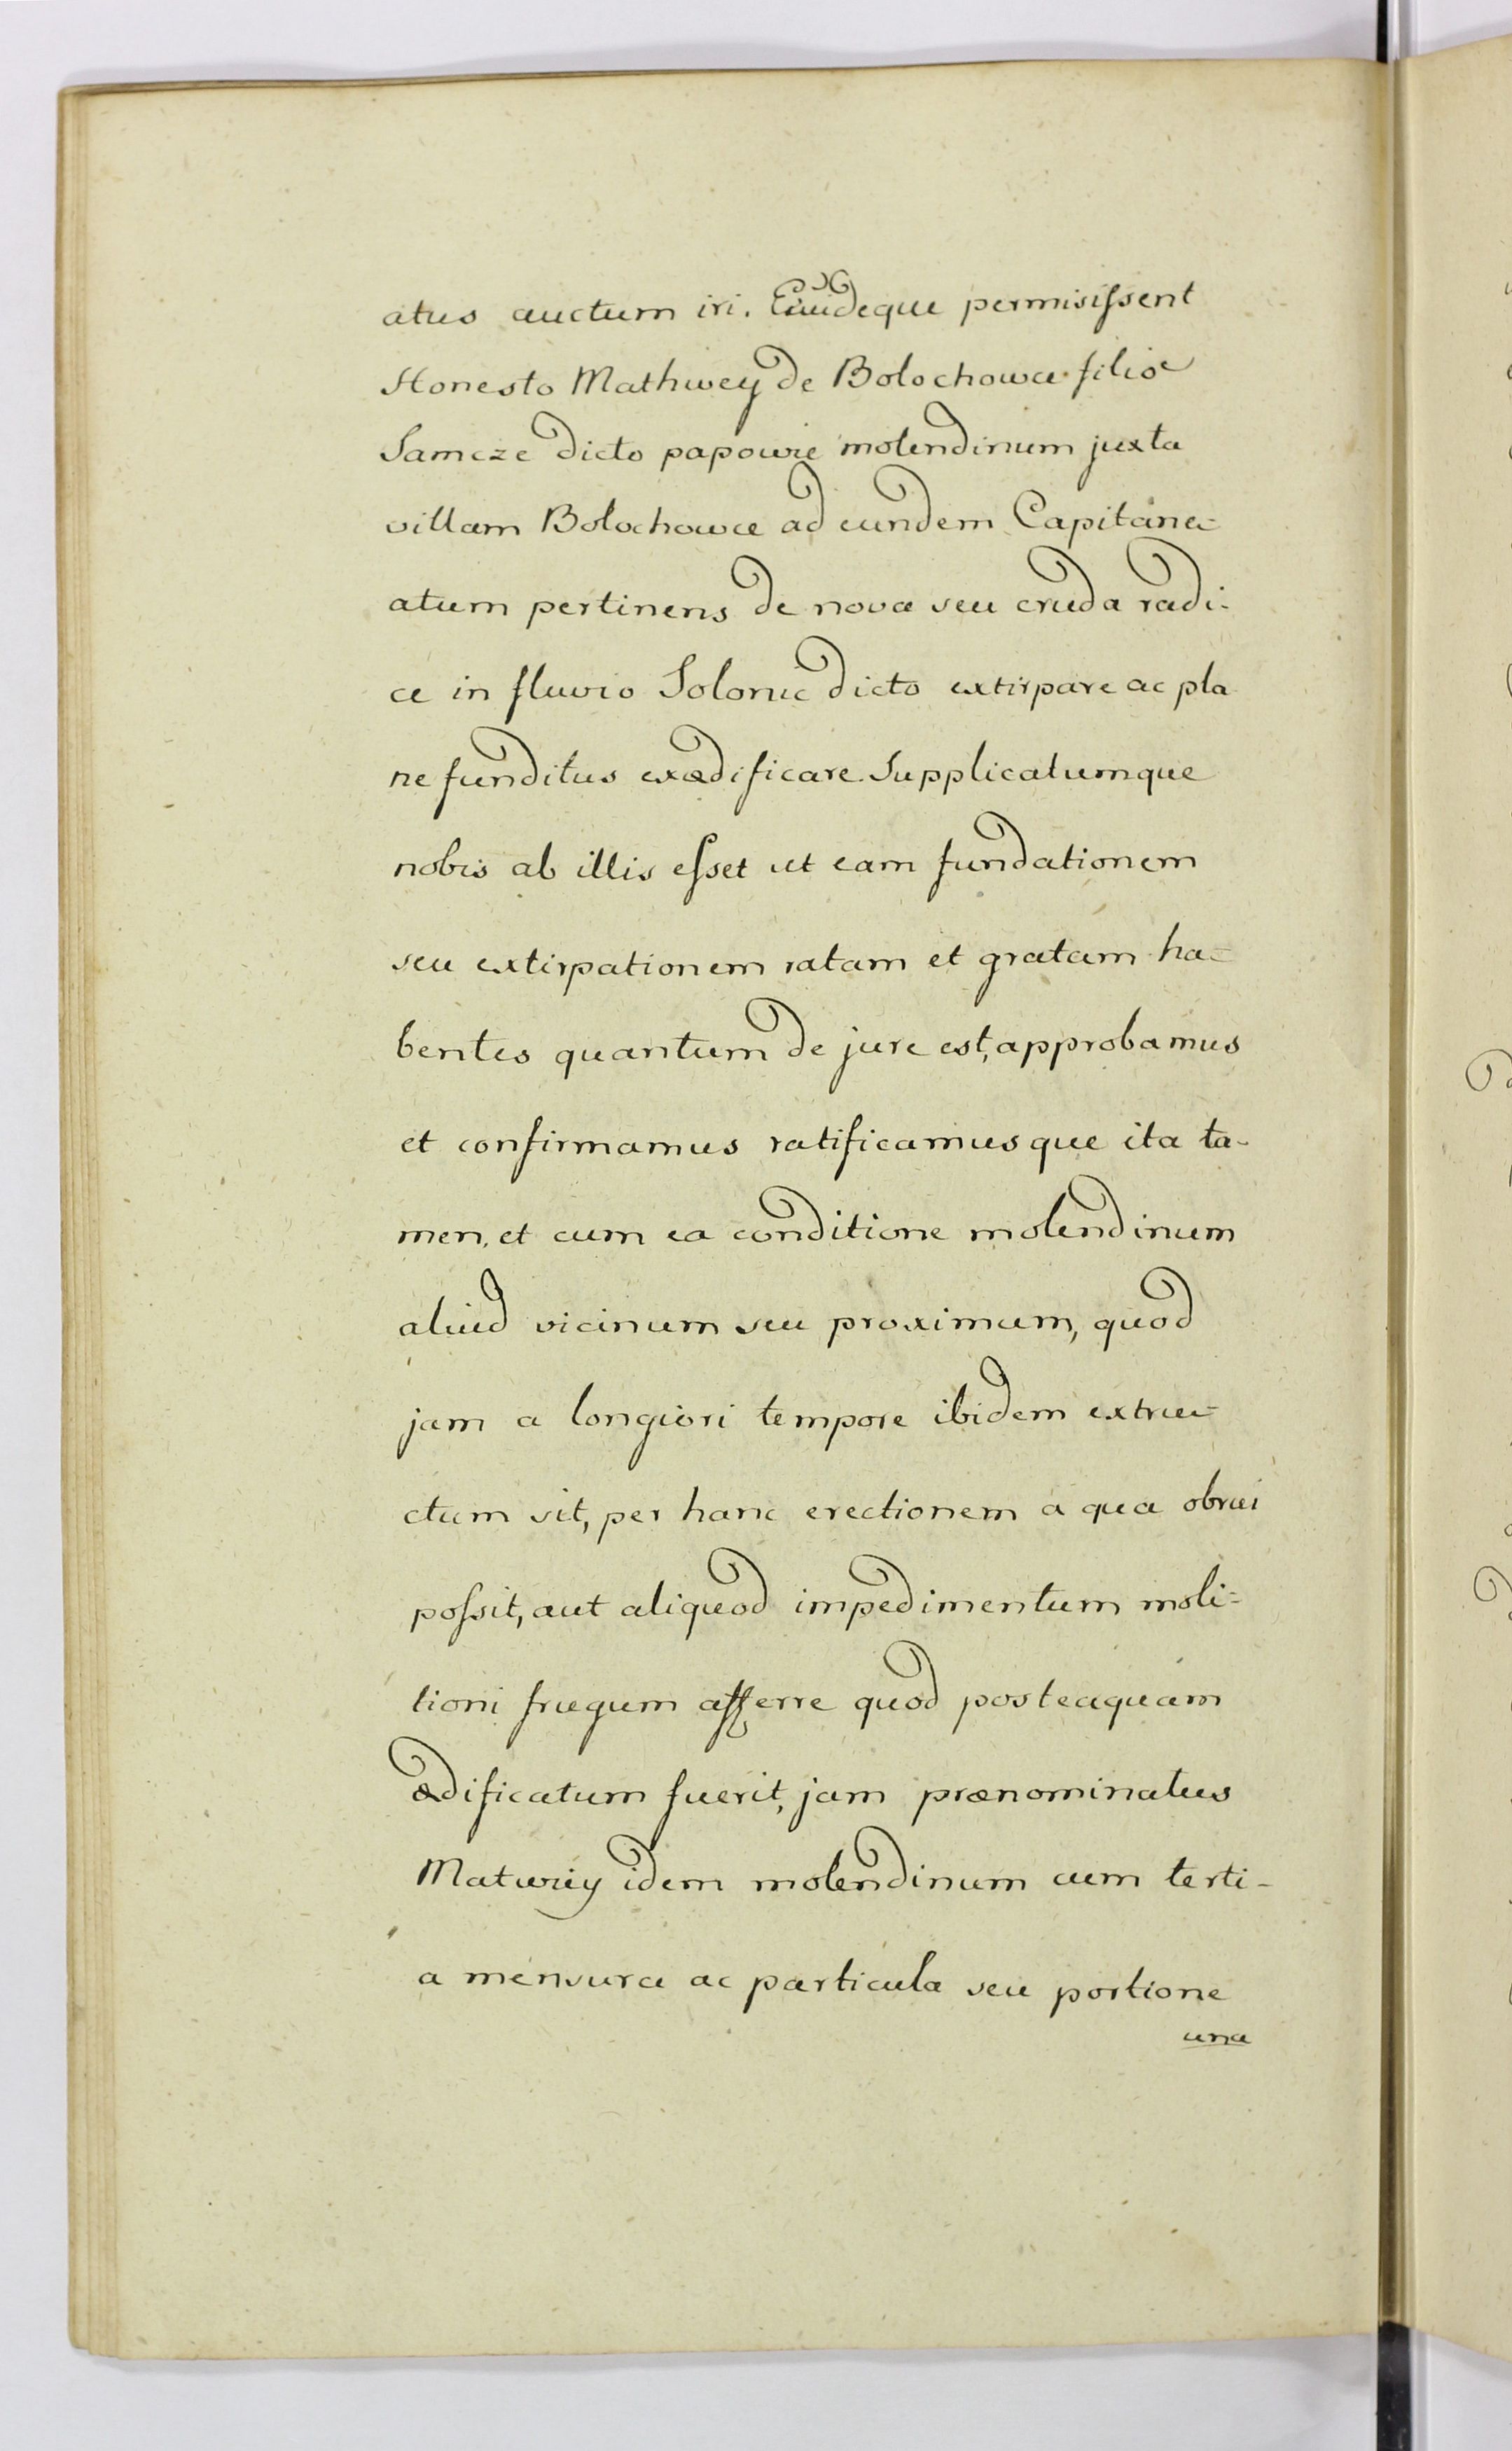 atus auctum iri. Eiuideque permisissent
Honesto Mathwey de Bolochowa filio
Samcze dicto papowie molendinum juxta
villam Bolochowce ad eundem Capitane-
atum pertinens de nova seu cruda radi-
ce in fluvio Solonic dicto extirpare ac pla
ne funditus exædificare Supplicatumque
nobis ab illis esset ut eam fundationem
seu extirpationem ratam et gratam ha=
bentes quantum de jure est, approbamus
et confirmamus ratificamusque ita ta-
men, et cum ea conditione molendinum
aliud vicinum seu proximum, quod
jam a longiori tempore ibidem extru-
ctum sit, per hanc erectionem a qua obrui
possit, aut aliquod impedimentum moli=
tioni frugum afferre quod posteaquam
ædificatum fuerit, jam prænominatus
Matwiey idem molendinum cum terti-
a mensura ac particula seu portione
una